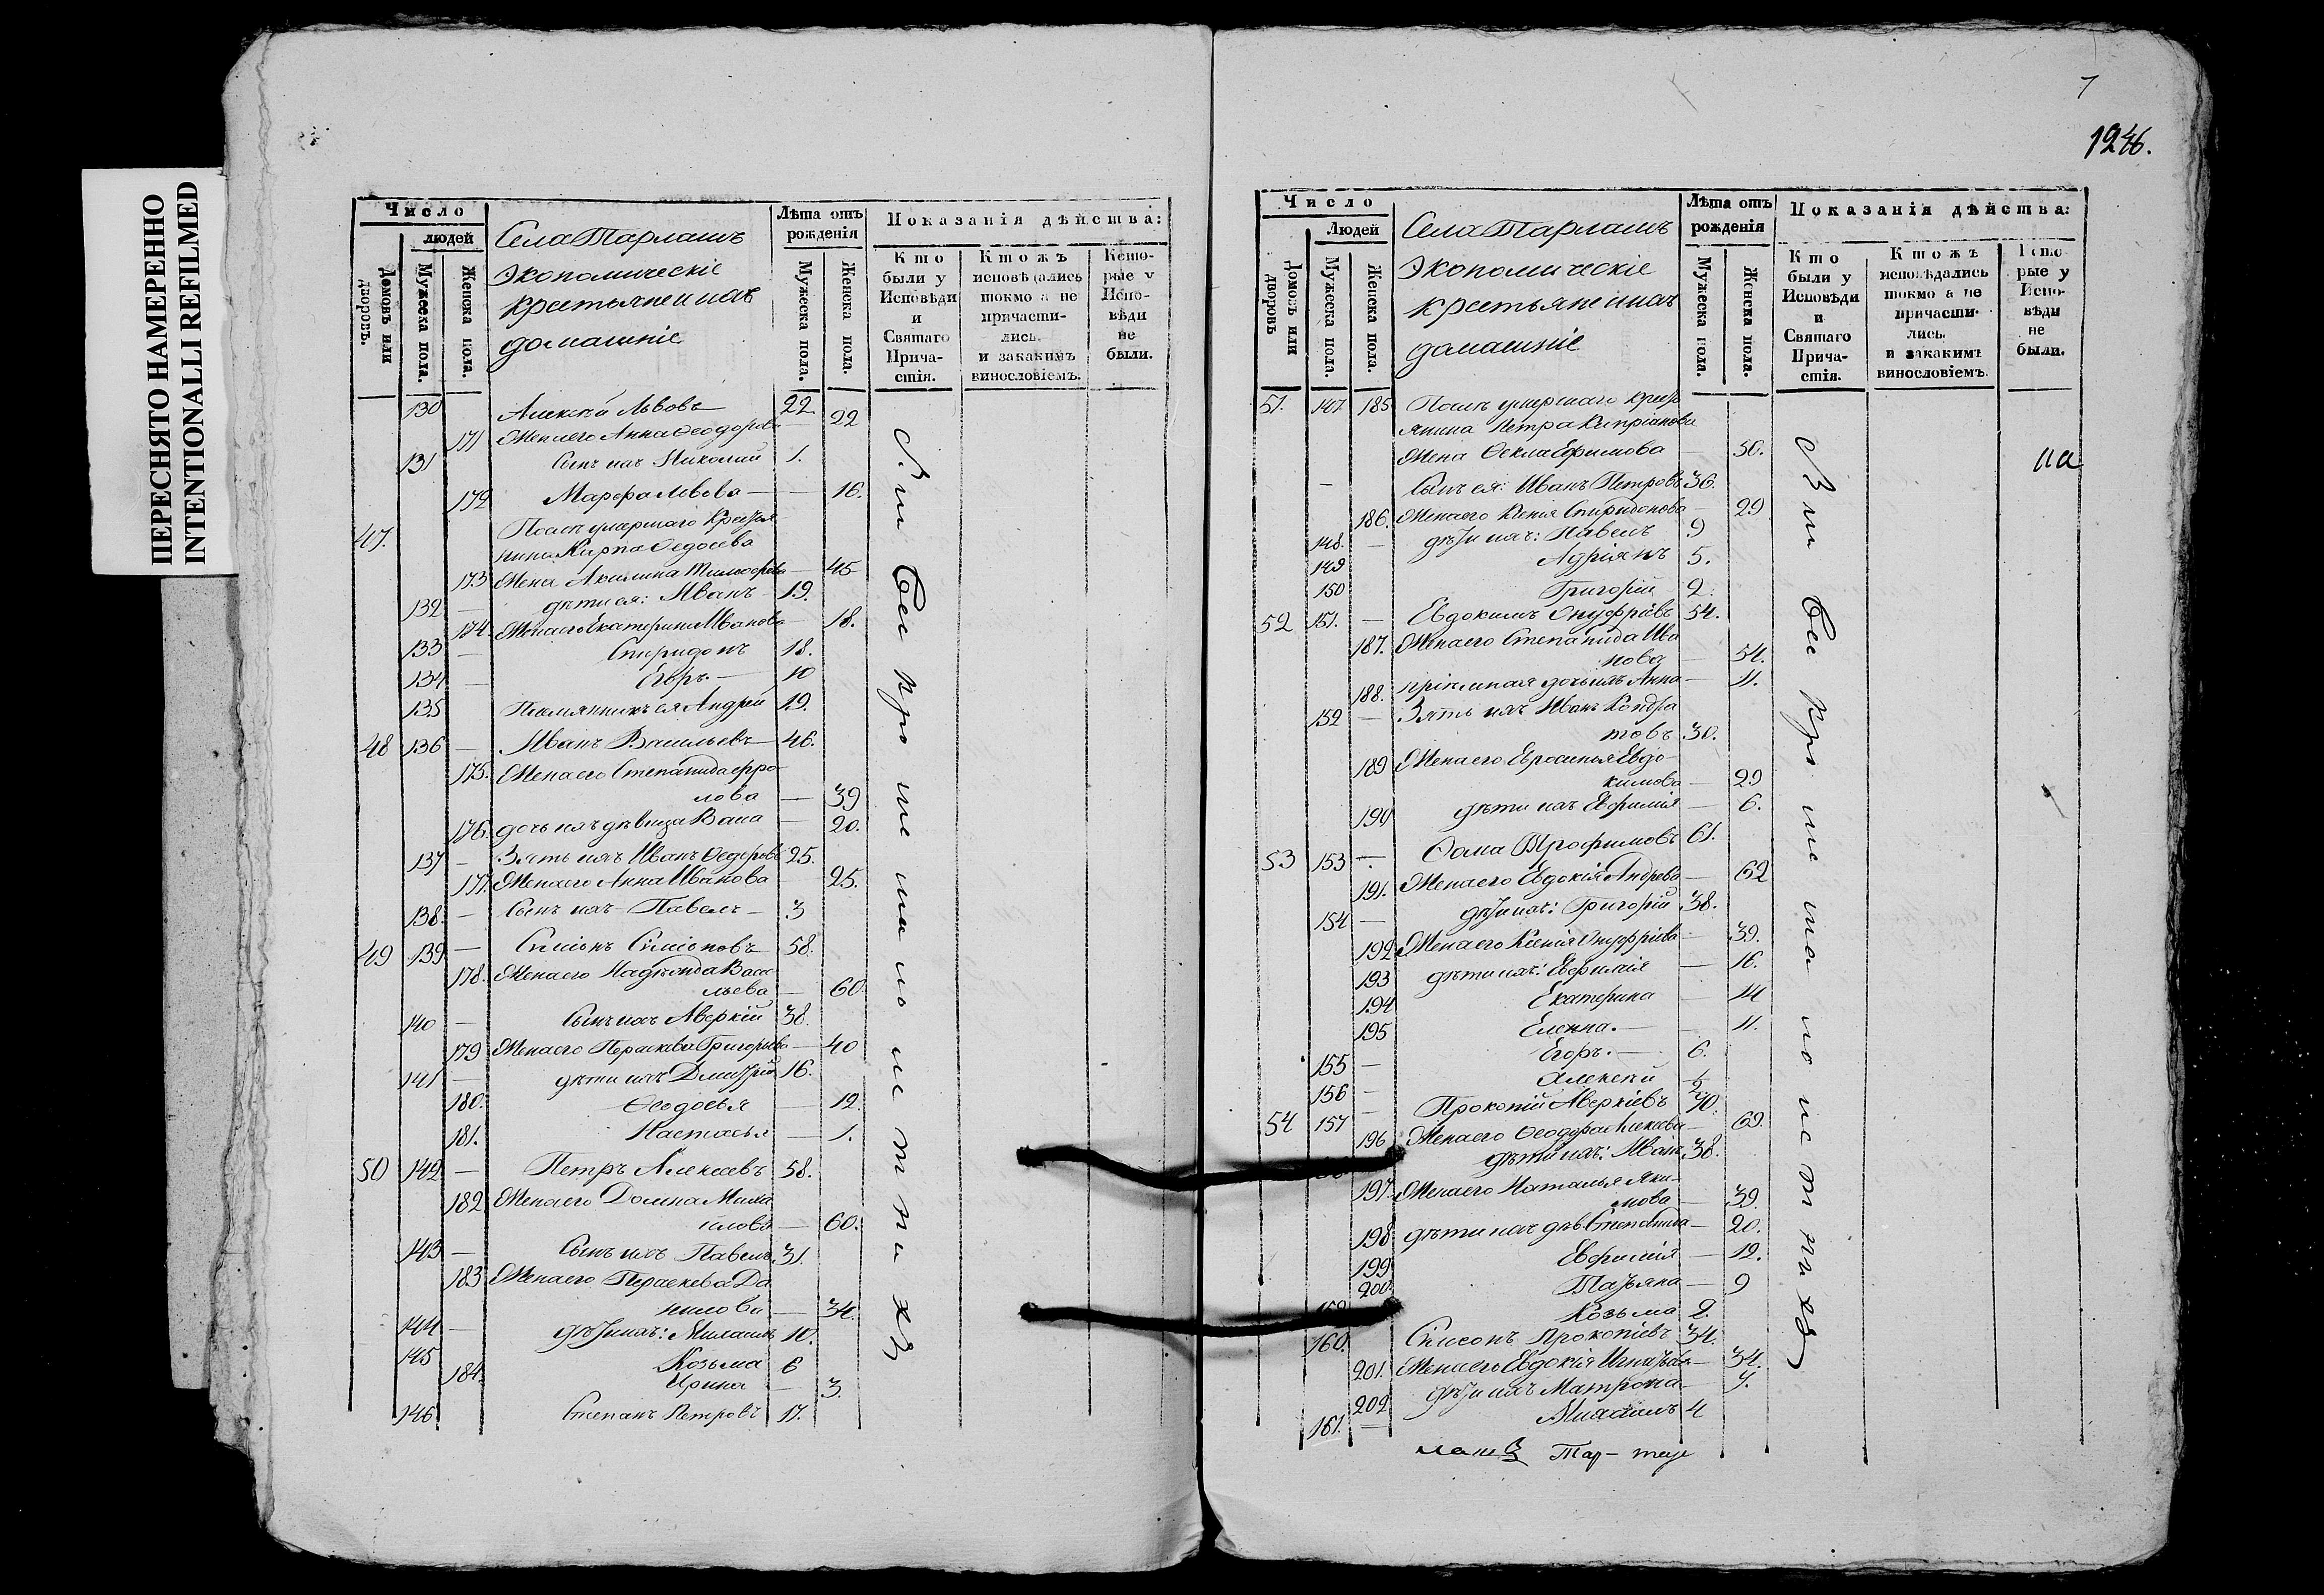 ПЕРЕСНЯТО НАМЕРЕННО
INTENTIONALLI REFILMED
Число
людей
Домовъ или дворовъ.
Мужеска пола.
Женска пола.
Села Тарлашъ
Экономическіе
крестьяне и ихъ
домашніе
Лѣта отъ рожденія
Мужеска пола.
Женска пола.
Показанія дѣйства:
Кто были у Исповѣди и Святаго Прича-стія.
Ктожъ исповѣдались токмо а не причасти-лись. и закакимъ винословіемъ.
Кото-рые у Испо-вѣди не были.
130 Алексѣй Львовъ 22
171 Жена его Анна Ѳеодорова — 22
131 Сынъ ихъ Николай 1.
172 Марѳа Львова — — 16.
47. Послѣ умершаго Крестья
нина Карпа Ѳедосѣева
173 Жена Акилина Тимоѳеева — 45
132 — дѣти ея: Иванъ 19.
174. Жена его Екатерина Иванова — 18.
133 — Спиридонъ 18.
134 — Егоръ. — 10
135 Племянникъ ея Андрей 19.
48 136 — Иванъ Васильевъ — 46.
175. Жена его Степанида Фро
лова — 39
176. дочь ихъ дѣвица Васса — 20.
137 — Зять ихъ Иванъ Ѳедоровъ 25.
177. Жена его Анна Иванова 25.
138. — Сынъ ихъ Павелъ — 3
49 139 — Симіонъ Симіоновъ 58.
178. Жена его Надежда Васи
льева — 60.
140 — Сынъ ихъ Аверкій 38.
179 Жена его Параскева Григорьева — 40
141 — дѣти ихъ Дмитрій 16.
180. Ѳеодосья — 12.
181. Настасья — 1.
50 142 — Петръ Алексѣевъ 58.
182 Жена его Домна Миха
илова — 60.
143 — Сынъ ихъ Павелъ 31.
183 Жена его Параскева Да
нилова — 34.
144 — дѣти ихъ: 10.
145 Козьма 6
184. Ирина — 3.
146 Степанъ Петровъ 17.
7
1246.
Число
Людей
Домовъ или дворовъ
Мужеска пола.
Женска пола.
Села Тарлашъ
Экономическіе
крестьяне и ихъ
домашніе
Лѣта отъ рожденія
Мужеска пола.
Женска пола.
Показанія дѣйства:
Кто были у Исповѣди и Святаго Прича-стія.
Ктожъ исповѣдались токмо а не причасти-лись. и закакимъ винословіемъ.
рые у Испо-вѣди не были.
51. 147. 185 Послѣ умершаго Крест
янина Петра Кипріанова
Жена Ѳекла Ефимова — 50.
— Сынъ ея: Иванъ Петровъ 36.
186. Жена его Ксенія Спиридонова — 29
148. — дѣти ихъ: Павелъ 9
149 Адріянъ 5.
150 Григорій 2.
52 151. — Евдокимъ Онуфріевъ 54.
187. Жена его Степанида Ива
нова — 54.
188. пріемная дочь ихъ Анна — 11.
152 — Зять ихъ Иванъ Кондра
товъ 30.
189 Жена его Евросинья Евдо-
кимова — 29
190 дѣти ихъ Евфимія — 6.
53 153 — Ѳома Трофимовъ 61.
191. Жена его Евдокія Андреева — 62
154 — дѣти ихъ: Григорій 38.
192 Жена его Ксенія Онуфріева — 39.
193 дѣти ихъ: Евфимія — 16.
194 Екатерина — 14
195 Елена. — — 11.
155 — Егоръ. — 6.
156 — Алексѣй ½
54 157 — Прокопій Аверкіевъ 70.
196 Жена его Ѳеодора Алексѣева — 69.
дѣти ихъ: Иванъ 38.
197. Жена его Наталья Яки-
мова — 39.
198 дѣти ихъ дѣв. Степанида — 20.
199 Евфимія — 12.
200. Татьяна — 9
159 Козьма 2.
160. Симеонъ Прокопіевъ 34.
201. Жена его Евдокія Игнатьева — 34.
202 дѣти ихъ Матрона — 7.
161. — Михаилъ 4
лашъ Тар-